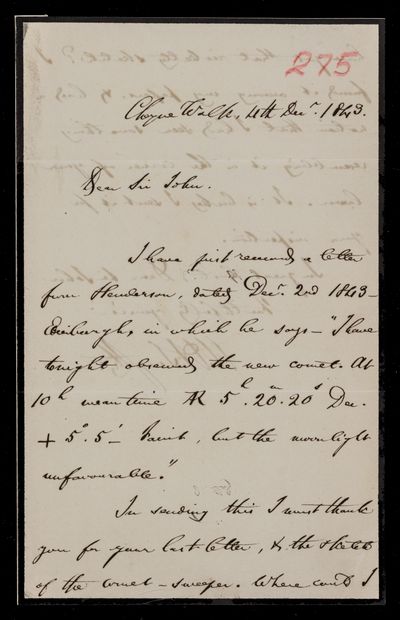 275
Cheyne Walk, 4th Decr. 1843.
Dear Sir John.
I have just received a letter
from Henderson, dated Decr. 2nd 1843 –
Edinburgh, in which he says – "I have
tonight observed the new comet. At
10h mean time AR 5h. 20m. 20s Dec.
+ 5°. 5' – Faint, but the moonlight
unfavourable."
In sending this I must thank
you for your last letter, & the sketch
of the comet – sweeper. Where could I